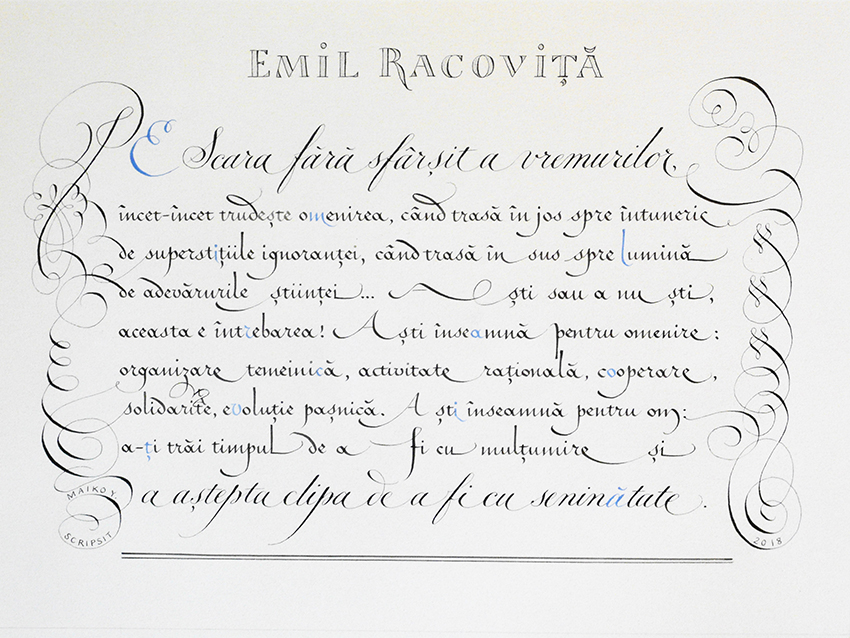 EMIL RACOVIȚĂ
PE Scara fără sfârșit a vremurilor,
încet-încet trudește omenirea, când trasă în jos spre întuneric
de superstițiile ignoranței, când trasă în sus spre lumină
de adevărurile științei... A ști sau a nu ști,
aceasta e întrebarea! A ști înseamnă pentru omenire:
organizare temeinică, activitate rațională, cooperare,
solidaritate, evoluție pașnică. A ști înseamnă pentru om:
a-ți trăi timpul de a fi cu mulțumire și
a aștepta clipa de a fi cu seninătate.
MAIKO Y.
SCRIPSIT
2018